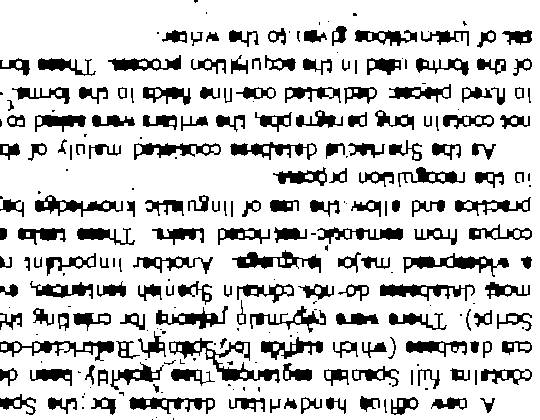 A new offline handwritten database for the Spa
contains full Spanish sentences, has recently been de
cus database (which stands for Spanish Restricted-do
Script). There were two main reasons for creating thi
most databases do not contain Spanish sentences, ev
a widespread major language. Another important re
corpus from semantic-restricted tasks. These tasks a
practice and allow the use of linguistic knowledge be
in the recognition process.
As the Spartacus database consisted mainly of sh
not contain long paragraphs, the writers were asked to
in fixed places: dedicated one-line fields in the forms.
of the forms used in the acquisition process. These for
set of instructions given to the writer.